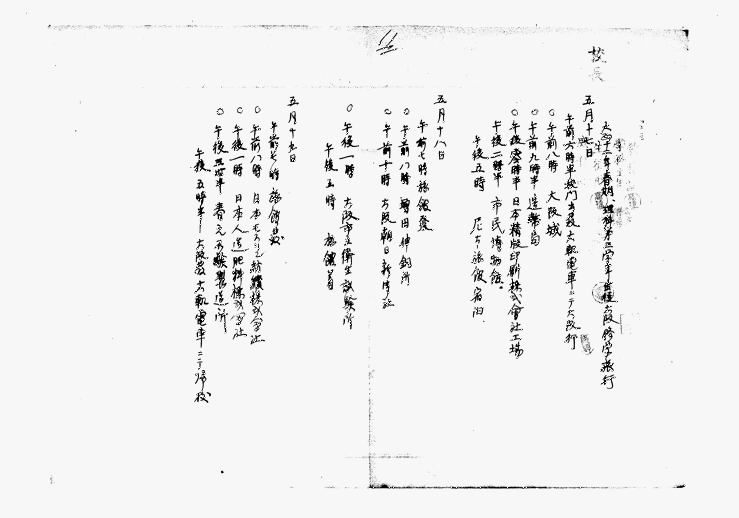 校長
大正十二年春期、理科第三学年生徒大阪修学旅行
五月十七日
午前六時半校門出発大軌電車ニテ大阪行
○午前八時 大阪城
○午前九時半 造幣局
○午後零時半 日本精版印刷株式會社工場
午後二時半 市民博物館。
午後五時 旅館宿泊
五月十八日
午前七時旅館発
○午前八時 伸銅所
○午前十時 大阪朝日新聞社
○午後一時 大阪市立衛生試験所
午後五時 旅館着
五月十九日
午前七時 旅館発
○午前八時 日本モスリン紡績株式会社
○午後一時 日本人造肥料株式会社
○午後 製造所
午後五時半 大阪発大軌電車ニテ帰校